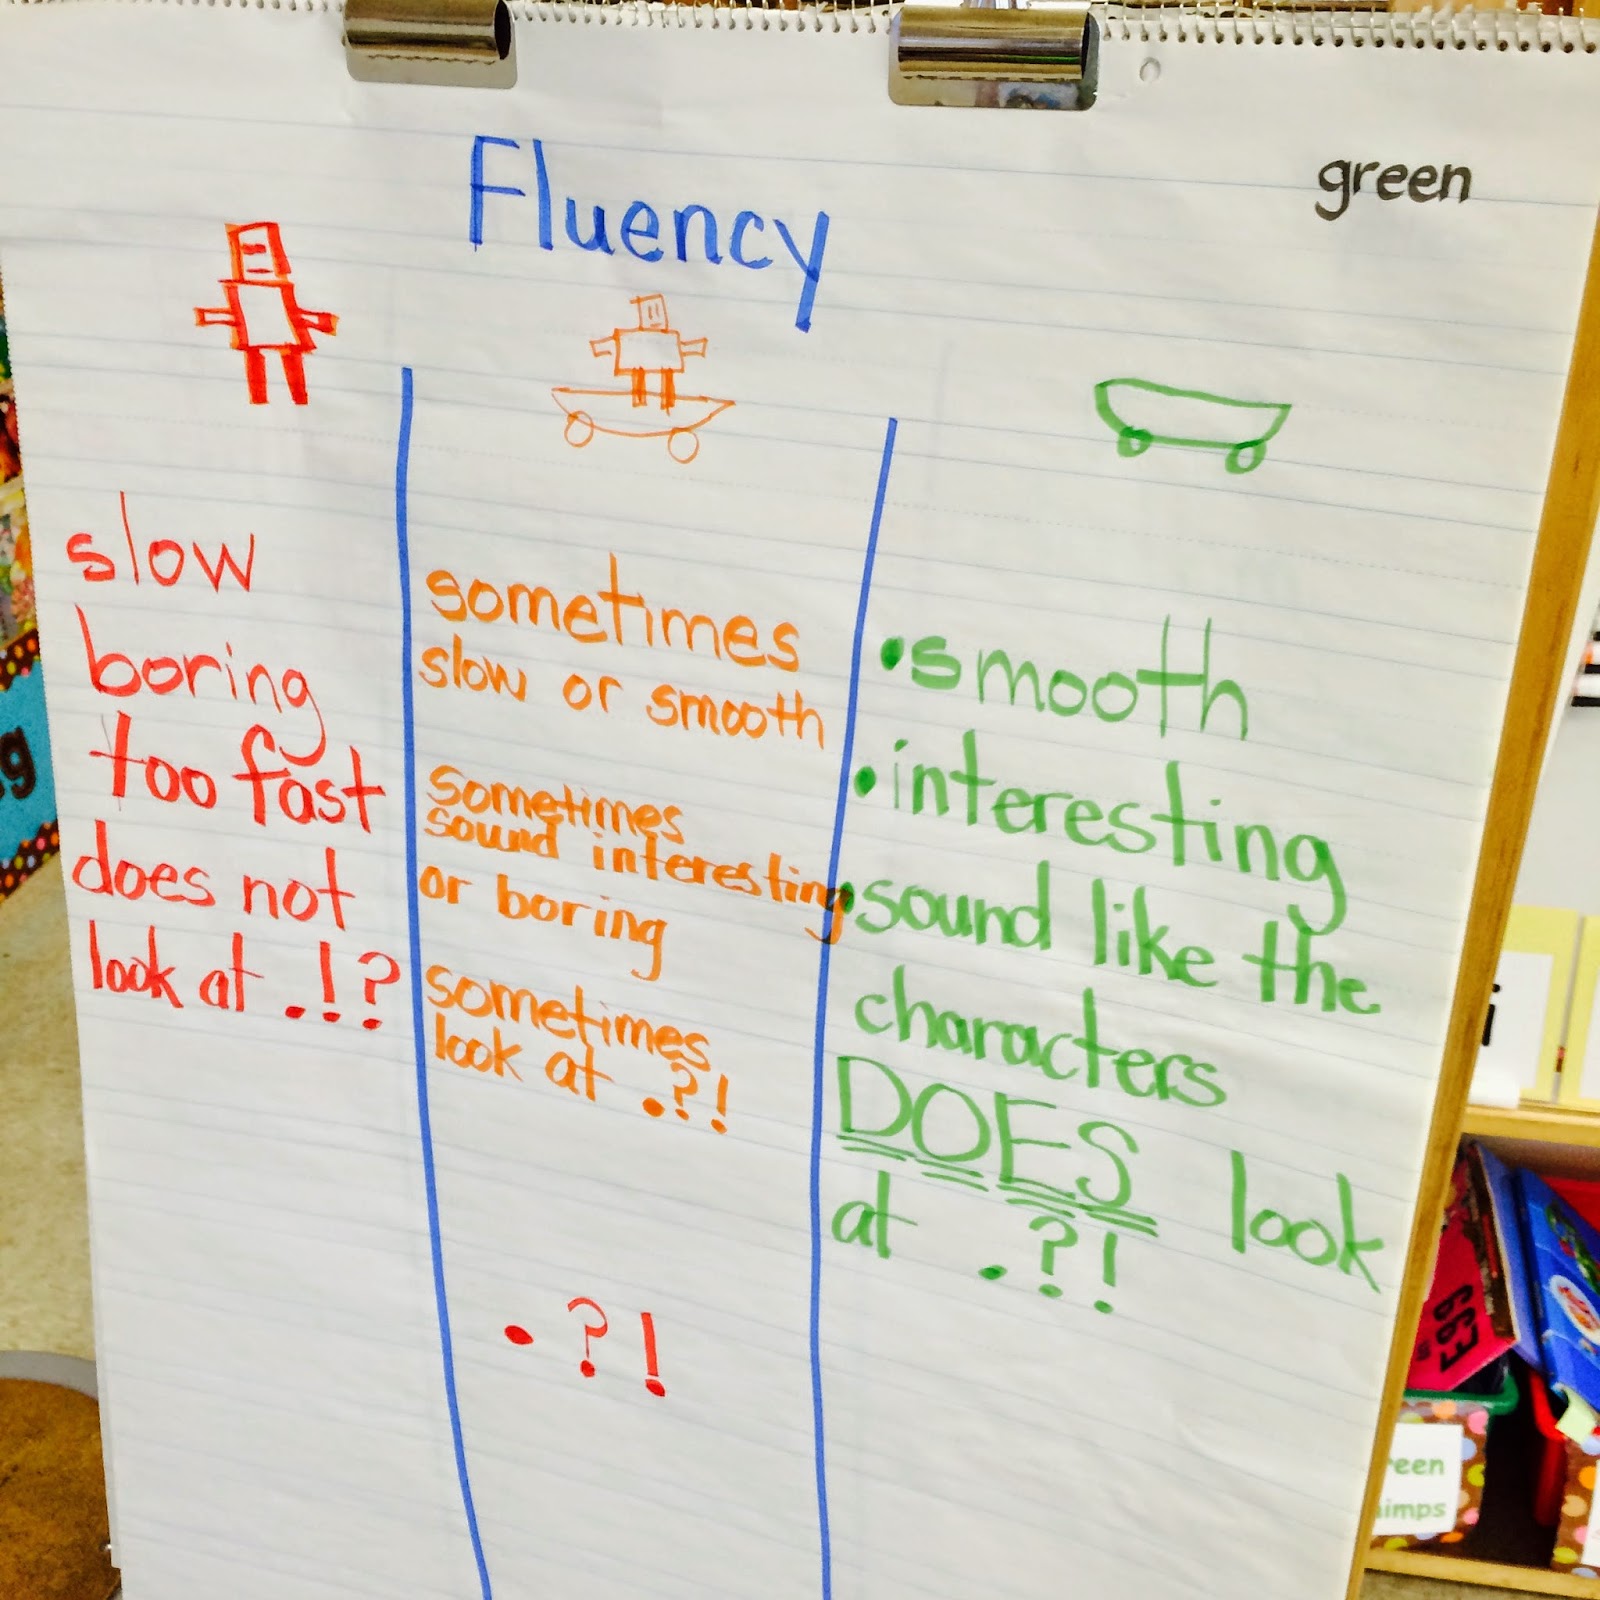 Fluency
green
slow
boring
too fast
does not
look at . ! ?
sometimes
slow or smooth
sometimes
sound interesting
or boring
sometimes
look at . ? !
. ? !
• smooth
• interesting
• sound like the
characters
DOES look
at . ? !